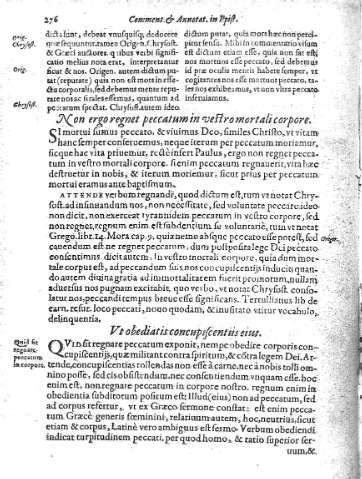 276 Comment. & Annotat. in Epist.
dicta sunt, debeat vnusquisq; dedocere
quæ sequuntur. tamen Orige. & Chrysost.
Orig.
Chrysost.
& auctores. quibus verbi significatio
melius nota erat, interpretantur
sicut & nos. Origen. autem dictum putat
Orig.
corporalis, sed debemus metae
Chrysost.
pectarum spectat. Chrysost. autem ideo
dictum putat, quia mors hæc non perdi-
pitur sensu. Mihi in commentario visum
est dictum etiam esse, quia non sat est
nos mortuos esse peccato, sed debemus
id præ oculis mentis habere semper, vt
cogitantes nos esse mortuos peccato, ta-
les nos exhibeamus, vt non vltra peccato
inseruiamus.
Non ergo regnet peccatum in vestro mortali corpore.
SI mortui sumus peccato, & viuimus Deo, similes Christo, vt vitam
hanc semper conseruemus, neque iterum per peccatum moriamur,
sicque hac vita priuemur, recte insert Paulus, ergo non regnet pecca-
tum in vestro mortali corpore. si enim peccatum regnauerit, vita hæc
destruetur in nobis, & iterum moriemur, sicut prius per peccatum
mortui eramus ante baptismum.
ATTENDE verbum regnandi, quod dictum est, tum vt notat Chry-
sost. ad insinuandum nos, non necessitate, sed voluntate peccare. ideo
non dicit, non exerceat tyrannidem peccatum in vestro corpore, sed
non regnet, regnum enim est subditentium se voluntarie, tum vt notat
Grego. libr. 14. Mora. cap. 9. quia nemo absque peccato esse potest, sed
cauendum est ne regnet peccatum, dum post
Orige.
consentimus. dicit autem: In vestro mortali corpore, quia dum mor-
tale corpus est, ad peccandum facit nos concupiscentijs induci: quan-
do autem diuina gratia ad immortalitatem fuerit promotum, nullum
aduersus nos pugnam excitabit. quo verbo, vt notat Chrysost. conso-
latur nos, peccandi tempus breue esse significans. Tertullianus lib. de
carn. resur. loco peccati, nouo quodam, & inusitato vtitur vocabulo,
delinquentia.
Vt obediatis concupiscentiis eius.
Quid sit
regnare
peccatum
in corpore.
QVid sit regnare peccatum exponit, nempe obedire corporis con-
cupiscentijs, quæ militant contra spiritum, & contra legem Dei. At-
tende, concupiscentias tollendas non esse à carne, nec à nobis tolli om-
nino posse, sed eis obsistendum. nec consentiendum vnquam esse. hoc
enim est. non regnare peccatum in corpore nostro. regnum enim in
obedientia subditorum positum est: Illud (eius) non ad peccatum, sed
ad corpus refertur, vt ex Græco sermone constat: est enim pecca-
tum Græcè generis fœminini, relatiuum autem, hoc, neutrius, sicut
etiam & corpus, Latinè vero ambiguus est sermo. Verbum obediendi
indicat turpitudinem peccati, per quod homo, & ratio superior ser-
uum, &.